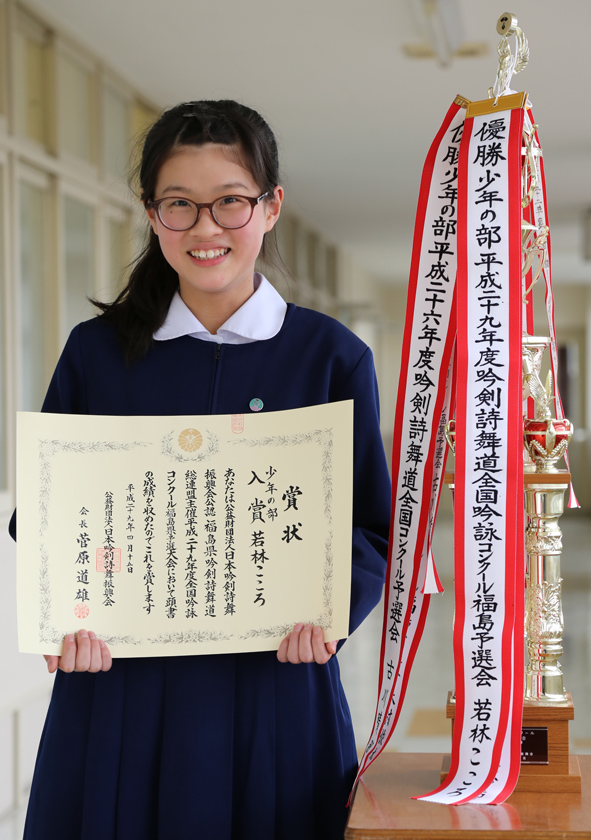 賞状
少年の部
入賞 若林こころ
あなたは公益財団法人日本吟剣詩舞
振興会公認 福島県吟剣詩舞道
総連盟主催平成二十九年度全国吟詠
コンクール福島県予選大会において頭書
の成績を収めたのでこれを賞します
平成二十九年四月十五日
公益財団法人日本吟剣詩舞振興会
会長 菅原道雄
優勝 少年の部 平成二十九年度吟剣詩舞道全国吟詠コンクール福島予選会 若林こころ
優勝 少年の部 平成二十六年度吟剣詩舞道全国コンクール予選会